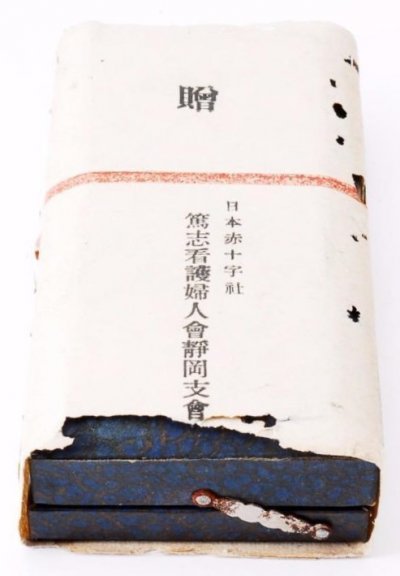 贈
日本赤十字社
篤志看護婦人會靜岡支會